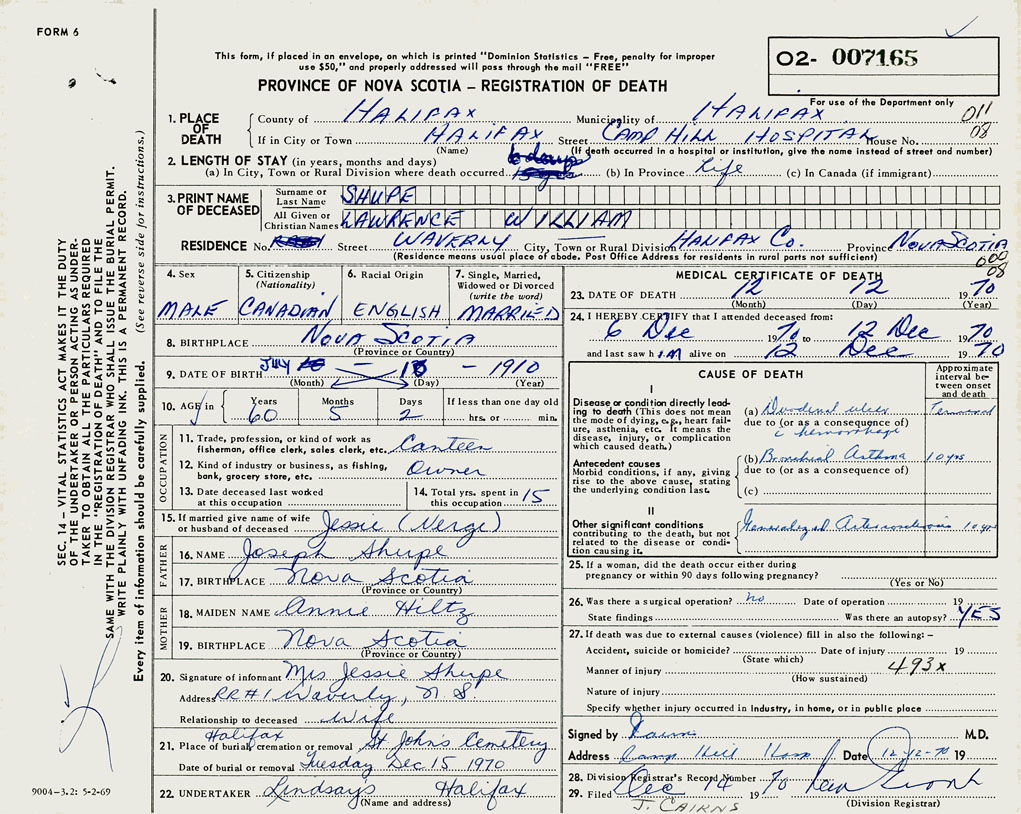 FORM 6
This form, if placed in an envelope, on which is printed "Dominion Statistics – Free, penalty for improper
use $50," and properly addressed will pass through the mail "FREE"
02- 007165
For use of the Department only
PROVINCE OF NOVA SCOTIA – REGISTRATION OF DEATH
011
08
1. PLACE OF DEATH County of HALIFAX Municipality of HALIFAX
If in City or Town HALIFAX Street CAMP HILL HOSPITAL House No.
(Name) (If death occurred in a hospital or institution, give the name instead of street and number)
2. LENGTH OF STAY (in years, months and days)
(a) In City, Town or Rural Division where death occurred 6 days (b) In Province Life (c) In Canada (if immigrant)
3. PRINT NAME OF DECEASED Surname or Last Name SHUPE
All Given or Christian Names LAWRENCE WILLIAM
RESIDENCE No. Street WAVERLY City, Town or Rural Division HALIFAX Co. Province NOVA SCOTIA
(Residence means usual place of abode. Post Office Address for residents in rural parts not sufficient)
000
08
4. Sex MALE
5. Citizenship (Nationality) CANADIAN
6. Racial Origin ENGLISH
7. Single, Married, Widowed or Divorced (write the word) MARRIED
8. BIRTHPLACE NOVA SCOTIA
(Province or Country)
9. DATE OF BIRTH JULY – 10 – 1910
(Month) (Day) (Year)
10. AGE in Years 60 Months 5 Days 2 If less than one day old hrs. or min.
OCCUPATION
11. Trade, profession, or kind of work as fisherman, office clerk, sales clerk, etc. Canteen
12. Kind of industry or business, as fishing, bank, grocery store, etc. Owner
13. Date deceased last worked at this occupation
14. Total yrs. spent in this occupation 15
15. If married give name of wife or husband of deceased Jessie (Verge)
FATHER
16. NAME Joseph Shupe
17. BIRTHPLACE Nova Scotia
(Province or Country)
MOTHER
18. MAIDEN NAME Annie Hiltz
19. BIRTHPLACE Nova Scotia
(Province or Country)
20. Signature of informant Mrs Jessie Shupe
Address RR #1 Waverly, N.S.
Relationship to deceased Wife
Halifax
21. Place of burial, cremation or removal St John's Cemetery
Date of burial or removal Tuesday Dec 15 1970
22. UNDERTAKER Lindsays Halifax
(Name and address)
MEDICAL CERTIFICATE OF DEATH
23. DATE OF DEATH 12 12 1970
(Month) (Day) (Year)
24. I HEREBY CERTIFY that I attended deceased from:
6 Dec 1970 to 12 Dec 1970
and last saw him alive on 12 Dec 1970
CAUSE OF DEATH
Approximate interval between onset and death
I
Disease or condition directly leading to death (This does not mean the mode of dying, e.g., heart failure, asthenia, etc. It means the disease, injury, or complication which caused death.)
(a) Duodenal ulcer Terminal
due to (or as a consequence of)
c hemorrhage
Antecedent causes
Morbid conditions, if any, giving rise to the above cause, stating the underlying condition last.
(b) Bronchial Asthma 10 yrs
due to (or as a consequence of)
(c)
II
Other significant conditions contributing to the death, but not related to the disease or condition causing it.
Generalized Arteriosclerosis 10 yrs
25. If a woman, did the death occur either during pregnancy or within 90 days following pregnancy?
(Yes or No)
26. Was there a surgical operation? no Date of operation 19
State findings Was there an autopsy? YES
27. If death was due to external causes (violence) fill in also the following: –
Accident, suicide or homicide? Date of injury 19
(State which)
Manner of injury 493x
(How sustained)
Nature of injury
Specify whether injury occurred in industry, in home, or in public place
Signed by M.D.
Address Camp Hill Hosp Date 12-12-70 19
28. Division Registrar's Record Number
29. Filed Dec 14 1970
J. CAIRNS
(Division Registrar)
SEC. 14 – VITAL STATISTICS ACT MAKES IT THE DUTY
OF THE UNDERTAKER OR PERSON ACTING AS UNDERTAKER
TO OBTAIN ALL THE PARTICULARS REQUIRED
IN THE "REGISTRATION OF DEATH" AND TO FILE THE
SAME WITH THE DIVISION REGISTRAR WHO SHALL ISSUE THE BURIAL PERMIT.
WRITE PLAINLY WITH UNFADING INK. THIS IS A PERMANENT RECORD.
Every item of information should be carefully supplied. (See reverse side for instructions.)
9004-3.2: 5-2-69